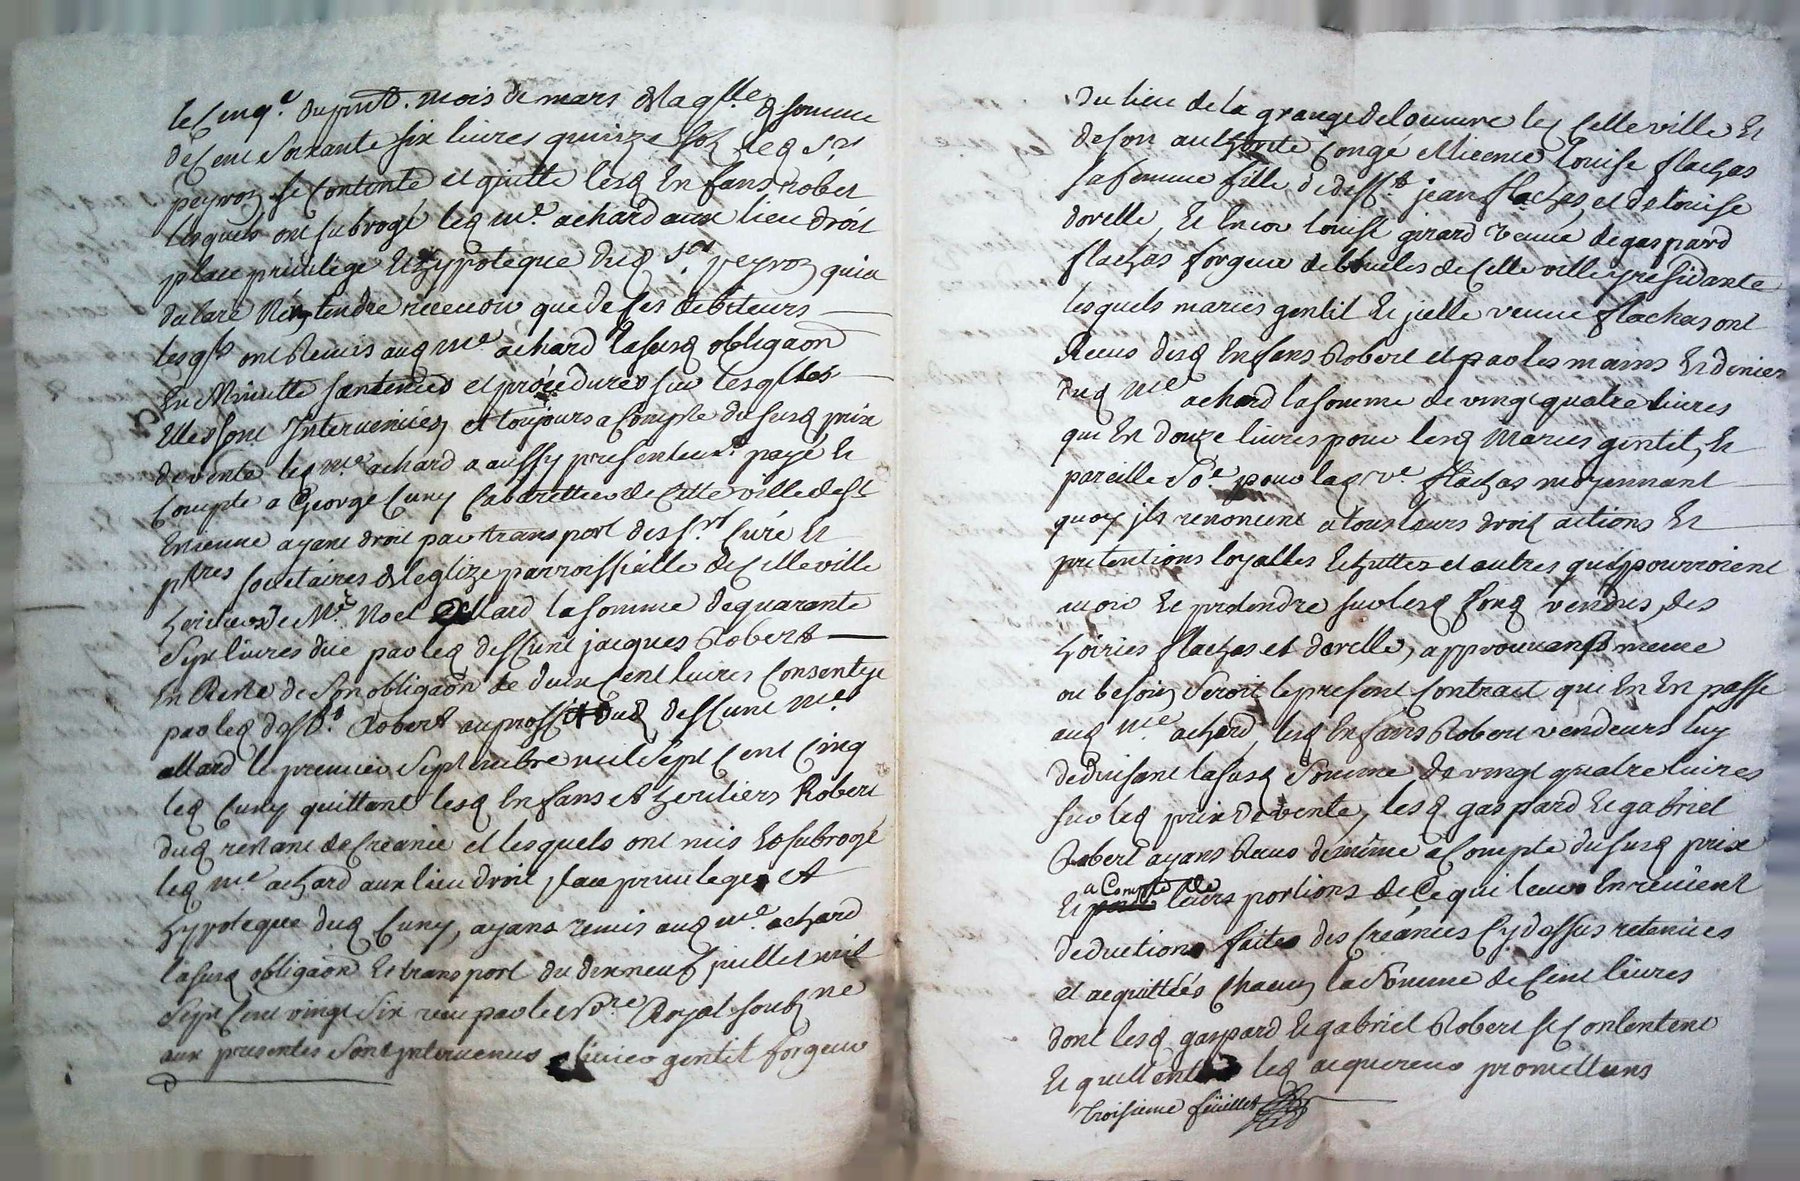 le cinqe. du pnt. mois de mars de laqlle. somme
de Cent Soixante six livres quinze sols led Sr
peyroz se contente et quitte lesd Enfans robert
lesquels ont subrogé led me. achard aux lieu droit
place privilege et hypoteque dud Sr peyroz qui a
declaré N'entendre recevoir que de ses debiteurs
lesqls ont Remis aud me. achard la susd obligaon
En Minutte sentences et procedures sur lesqlles
Elles sont Intervenües, et toujours a Compte du susd prix
de vente led me. achard a aussy presentemt. payé et
Compté a George Cuny Cabarettier de Cette ville de St
Etienne ayant droit par transport des Sr. Curé et
ptres societaires de leglize parroissialle de Cette ville
heritiers de Mre. Noel allard la somme de quarante
Sept livres düe par led deffunt jacques Robert
En Reste de Son obligaon de deux Cent livres Consentye
par led defft. Robert au proffit dud deffunt me.
allard le premier Septembre mil Sept Cent Cinq
led Cuny quittant lesd Enfans et heritiers Robert
dud restant de Creance et lesquels ont mis et subrogé
led me. achard aux lieu droit, place privileges et
hypoteque dud Cuny, ayant remis aud me. achard
la susd obligaon et transport du dix neuf juillet mil
Sept Cent vingt Six reçu par le Nore. Royal soubzne
aux presentes Sont intervenus gentit forgeur
du lieu de la grange de loeuvre lez Cette ville et
de son authorité Congé et licence Louise flachas
sa femme fille de defft. jean flachas et de louise
dorelle, et Encor louise girard veuve de gaspard
flachas forgeur de boucles de Cette ville y residante
lesquels maries gentit et jcelle veuve flachas ont
Receu desd Enfans Robert et par les mains et deniers
dud me. achard la somme de vingt quatre livres
qui Est douze livres pour lesd Maries gentit, et
pareille So.e pour lad ve. flachas moyennant
quoy jls renoncent a tous leurs droit actions et
pretentions loyalles et huttes et autres quils pourroient
avoir et pretendre sur lesd fond vendus, des
hoiries flachas et dorelle, approuvant même
ou besoin Seroit le present Contract qui En En passe
aud me. achard, lesd Enfans Robert vendeurs luy
deduisant la susd Somme de vingt quatre livres
sur led prix de vente, lesd gaspard et gabriel
Robert ayans Receu de même a Compte du susd prix
et a Compte de leurs portions de Ce qui leur En revient
deductions faites des Creances Cy dessus retenües
et acquittées Chacun la Somme de Cent livres
dont lesd gaspard et gabriel Robert se Contentent
et quittent led acquereur promettans
troisieme feüillet